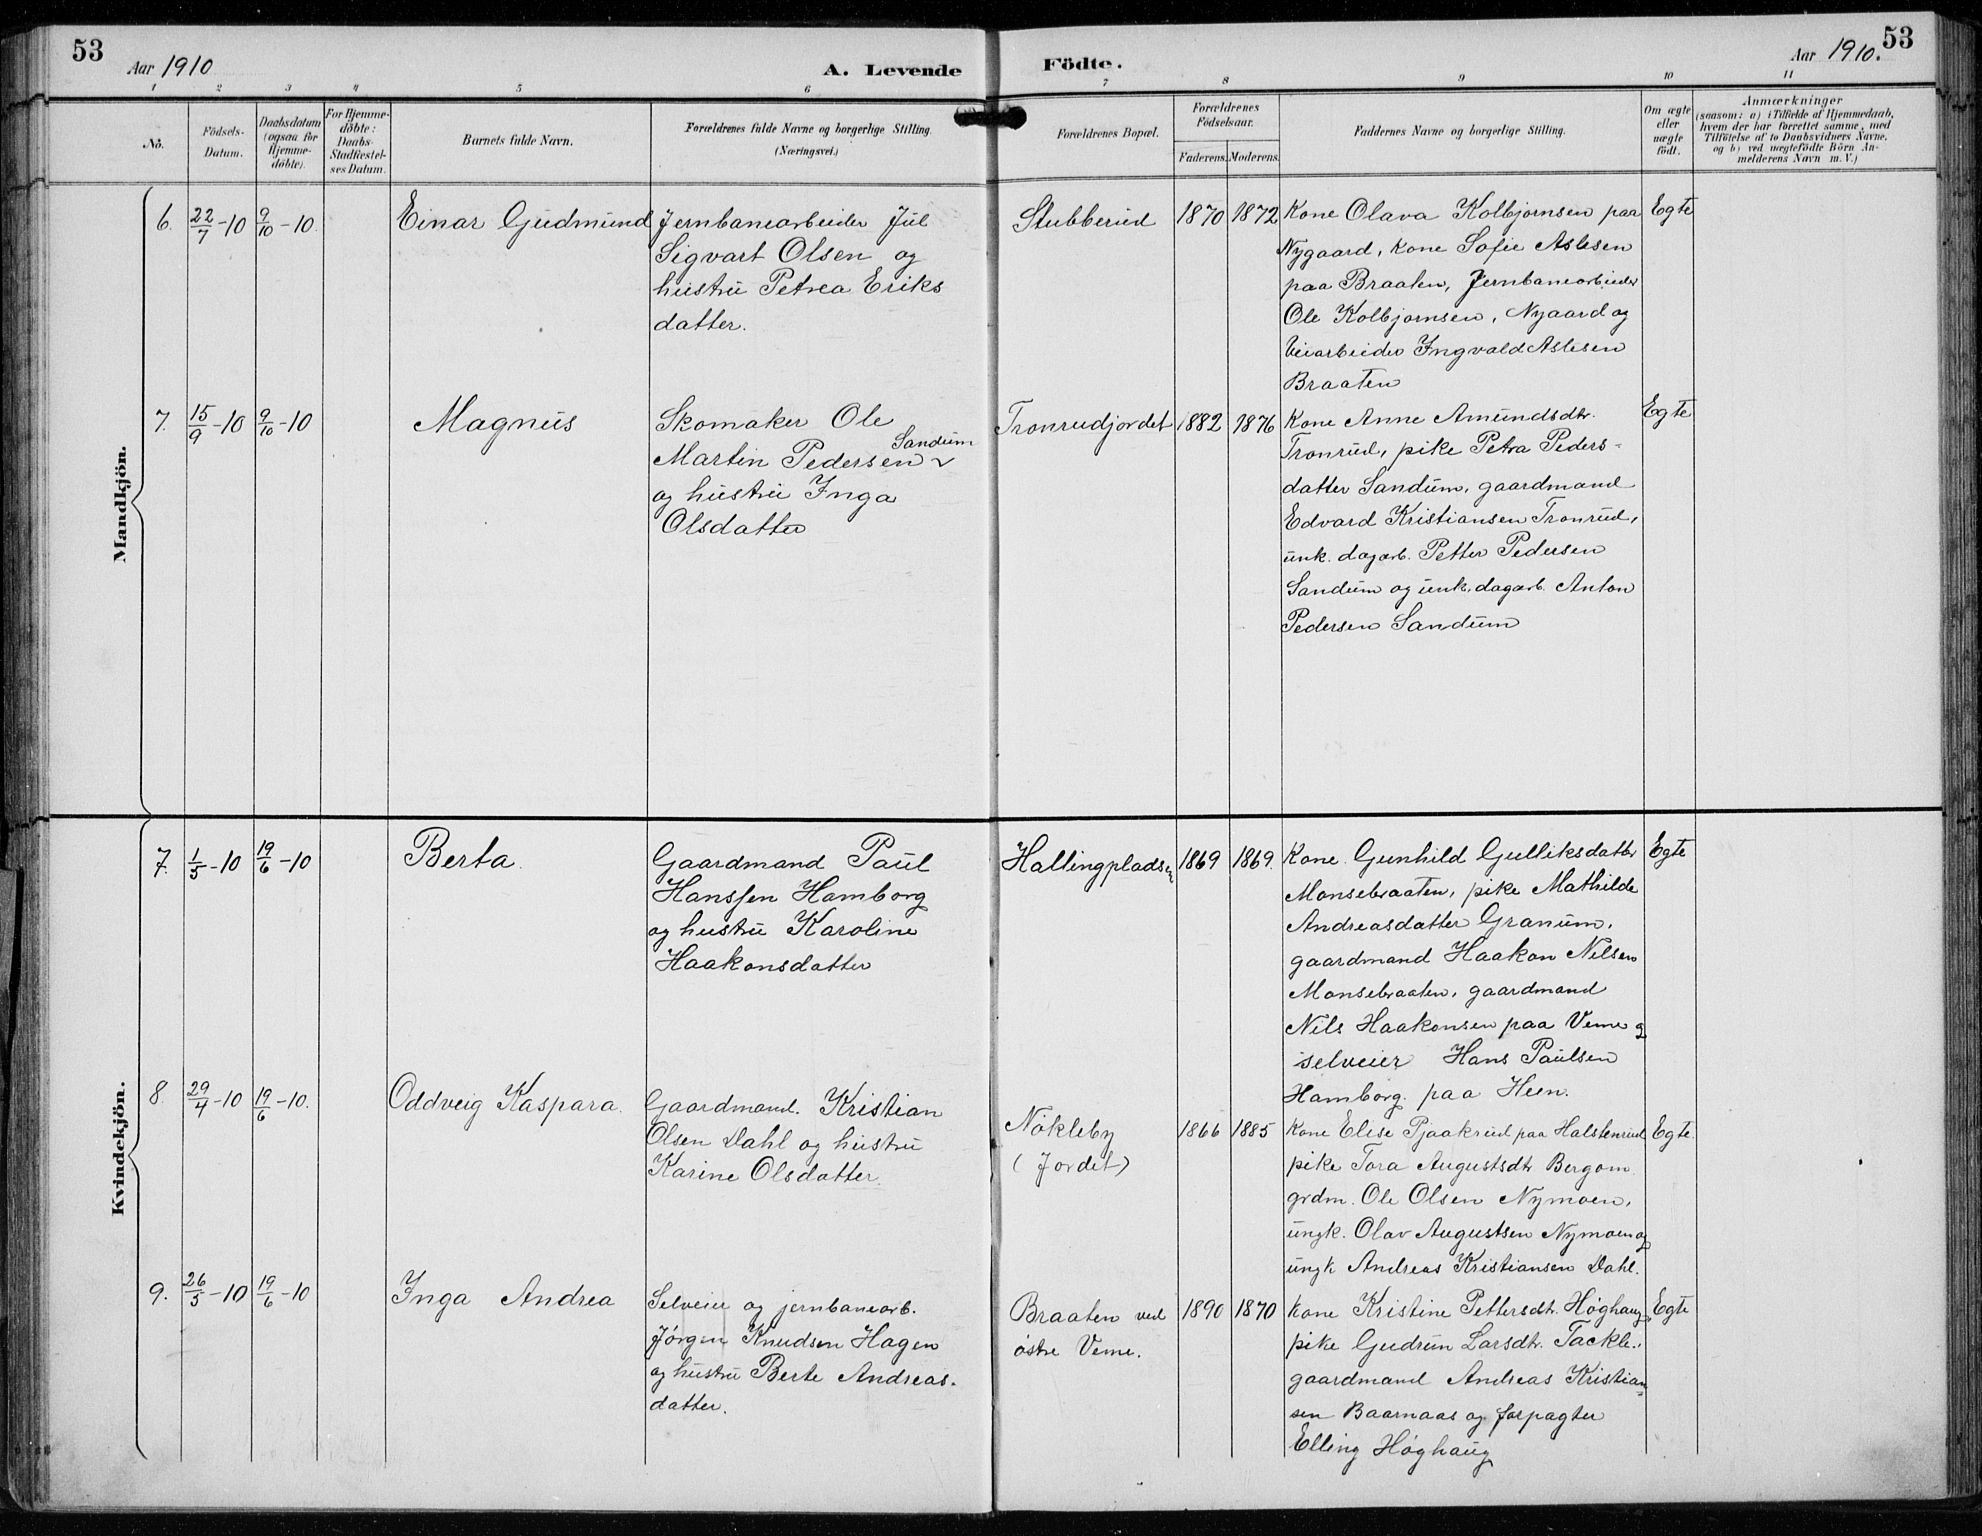 53
Aar 1910
A. Levende
Födte.
Aar 1910.
53
1 2 3 4 5 6 7 8 9 10 11
No.
Födsels-
Datum.
Daabsdatum
(ogsaa for
Hjemme-
döbte).
For Hjemme-
döbte:
Daabs-
Stadfæstel-
ses Datum.
Barnets fulde Navn.
Forældrenes fulde Navne og borgerlige Stilling.
(Næringsvei.)
Forældrenes Bopæl.
Forældrenes
Födselsaar.
Faderens. Moderens.
Faddernes Navne og borgerlige Stilling.
Om ægte
eller
uægte
födt.
Anmærkninger
(saasom: a) i Tilfælde af Hjemmedaab,
hvem der har forrettet samme, med
Tilföielse af to Daabsvidners Navne,
og b) ved uægtefödte Börn An-
melderens Navn m. V.)
Mandkjön.
6. 22/7-10 9/10-10. Einar Gudmund
Jernbanearbeider Jul
Sigvart Olsen og
hustru Petrea Eriks
datter.
Stubberud 1870 1872
Kone Olava Kolbjørnsen paa
Nygaard, kone Sofie Aslesen
paa Braaten, Jernbanearbeider
Ole Kolbjørnsen, Nyaard og
Veiarbeider Ingvald Aslesen
Braaten
Egte
7. 15/9-10 9/10-10 Magnus
Skomaker Ole
Martin Pedersen Sandum
og hustru Inga
Olsdatter
Tronrudjordet 1882 1876
Kone Anne Amundsdtr.
Tronrud, pike Petra Peders-
datter Sandum, gaardmand
Edvard Kristiansen Tronrud,
unk. dagarb. Petter Pedersen
Sandum og unk. dagarb. Anton
Pedersen Sandum
Egte
Kvindekjön.
7. 1/5-10 19/6-10 Berta
Gaardmand Paul
Hanssen Hamborg
og hustru Karoline
Haakonsdatter
Hallingpladsen 1869 1869.
Kone Gunhild Gulliksdatter
Monsebraaten, pike Mathilde
Andreasdatter Granum,
gaardmand Haakon Nilsen
Monsebraaten, gaardmand
Nils Haakonsen paa Veme og
selveier Hans Paulsen
Hamborg. paa Heen.
Egte
8. 29/4-10 19/6-10. Oddveig Kaspara.
Gaardmand. Kristian
Olsen Dahl og hustru
Karine Olsdatter.
Nökleby
(Jordet)
1866 1885
Kone Elise Pjaakrud paa Halstenrud
pike Tora Augustsdtr Bergom.
grdm. Ole Olsen Nymoen,
ungk. Olav Augustsen Nymoen og
ungk Andreas Kristiansen Dahl.
Egte.
9. 26/5-10 19/6-10 Inga Andrea
Selveier og jernbanearb.
Jørgen Knudsen Hagen
og hustru Berte Andreas-
datter.
Braaten ved
østre Veme.
1890 1870
Kone Kristine Pettersdtr. Høghaug,
pike Gudrun Larsdtr. Tackle.,
gaardmand Andreas Kristian-
sen Baarnaas og forpagter
Elling Høghaug
Egte